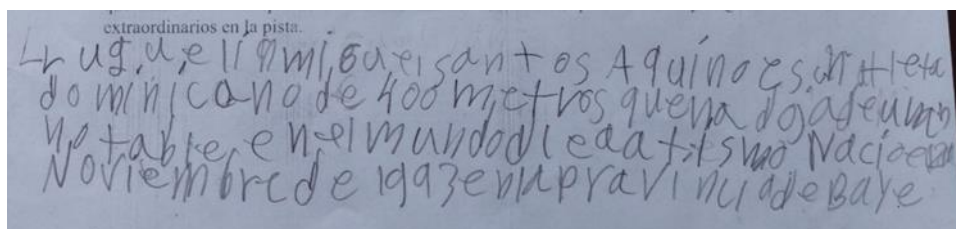 extraordinarios en la pista.
Lrug,u,elínmiguelsantos Aquíno es un atleta
domínicano de 400 metros queha dojadeunan
notable, en el mundodleaatitismo Nacioe
Noviembrede 1993 enlapravinciadeBaye